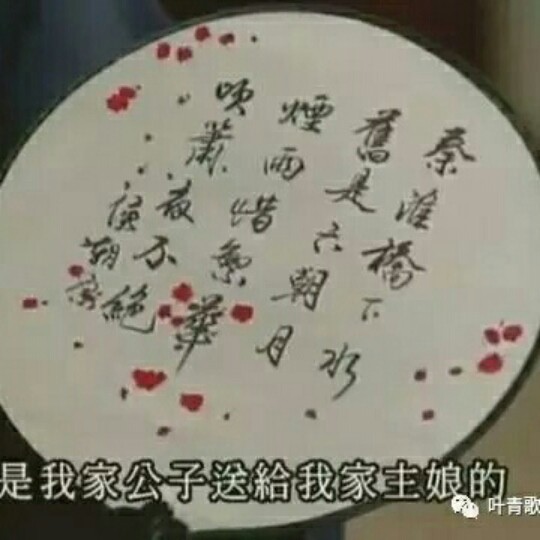 秦淮橋下水
舊是六朝月
煙雨惜繁華
吹簫夜不絕
侯朝宗
是我家公子送給我家主娘的
叶青歌